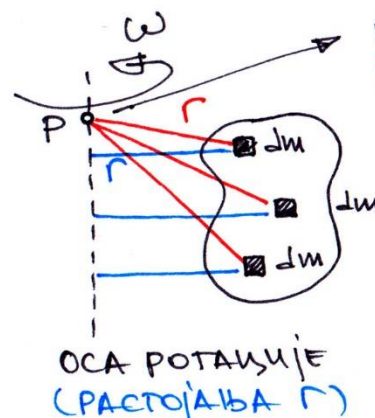 ω
r
P
dm
r
dm
dm
ОСА РОТАЦИЈЕ
(РАСТОЈАЊА r)